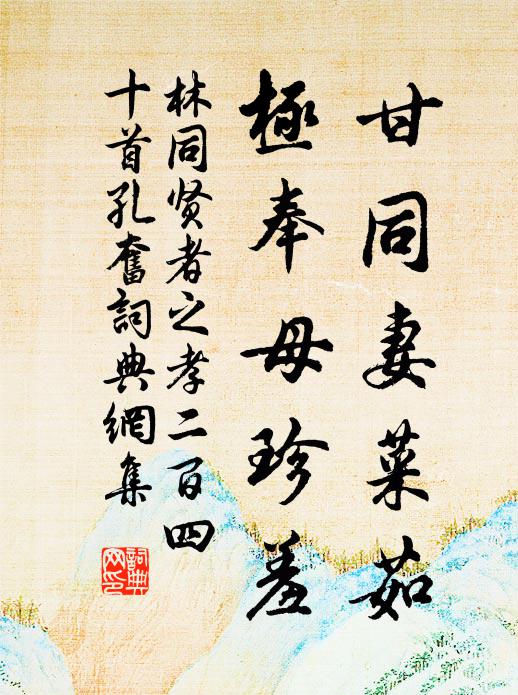 甘同妻菜茹
極奉母珍羞
林同贤者之孝二百四
十首孔奮詞典網集
詞典
网印